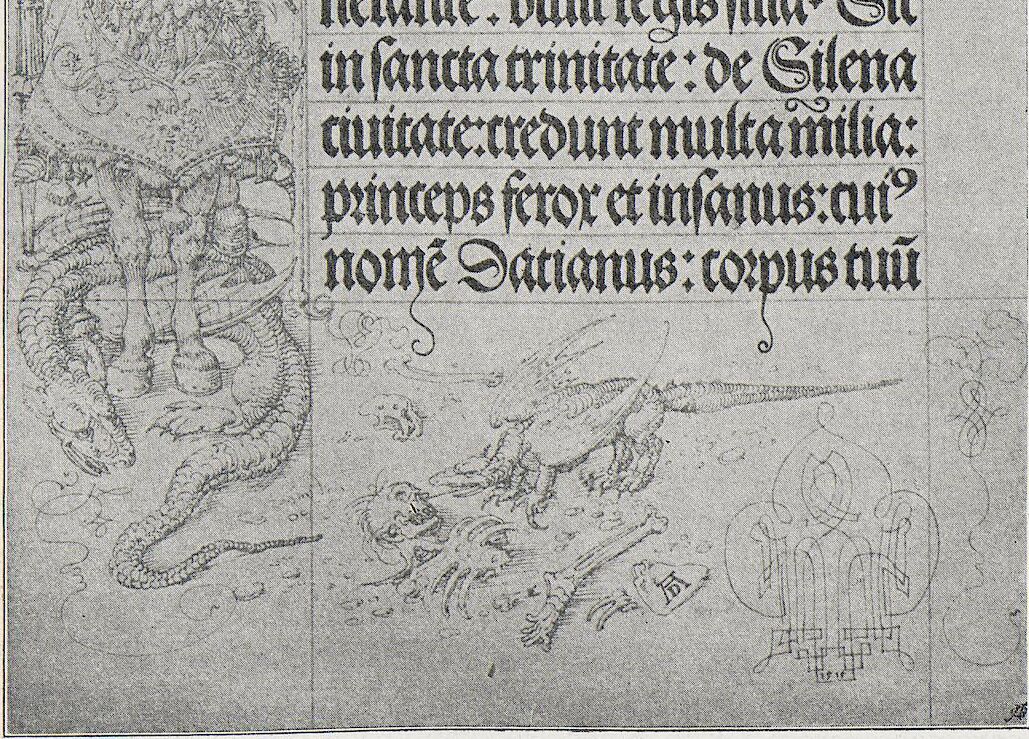 regis filia·
in ſancta trinitate: de Silena
ciuitate: credunt multa milia:
princeps ferox et inſanus: cuiꝰ
nomē Dacianus: corpus tuū
AD